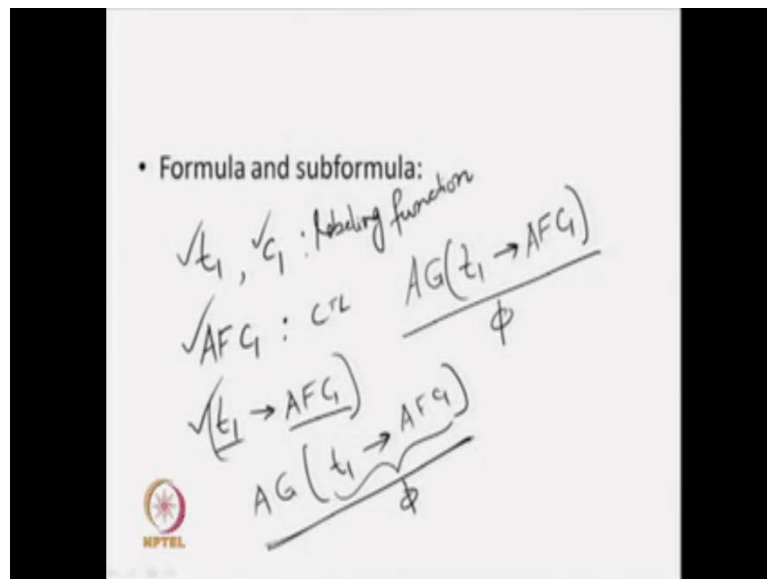 • Formula and subformula:
✓t₁, ✓c₁ : labeling function
✓AF c₁ : CTL
AG(t₁ → AF c₁)
ϕ
✓(t₁ → AF c₁)
AG(t₁ → AF c₁)
ϕ
NPTEL